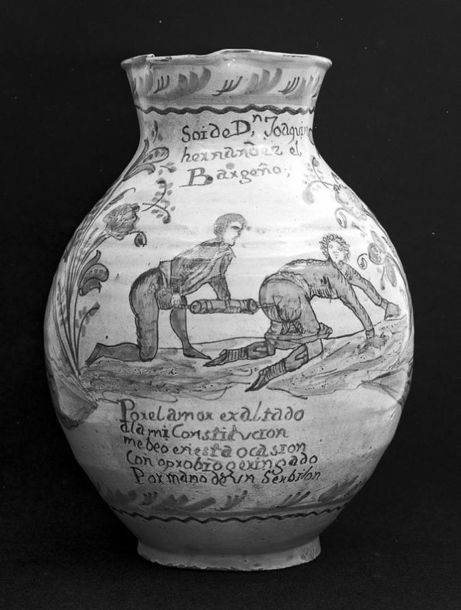 Soi de D.ⁿ Joaquin
hernandez el
Bargeño,
Por el amor exaltado
a la mi Constitucion
me beo en esta ocasion
Con oprobio geringado
Por mano de un Serbilon